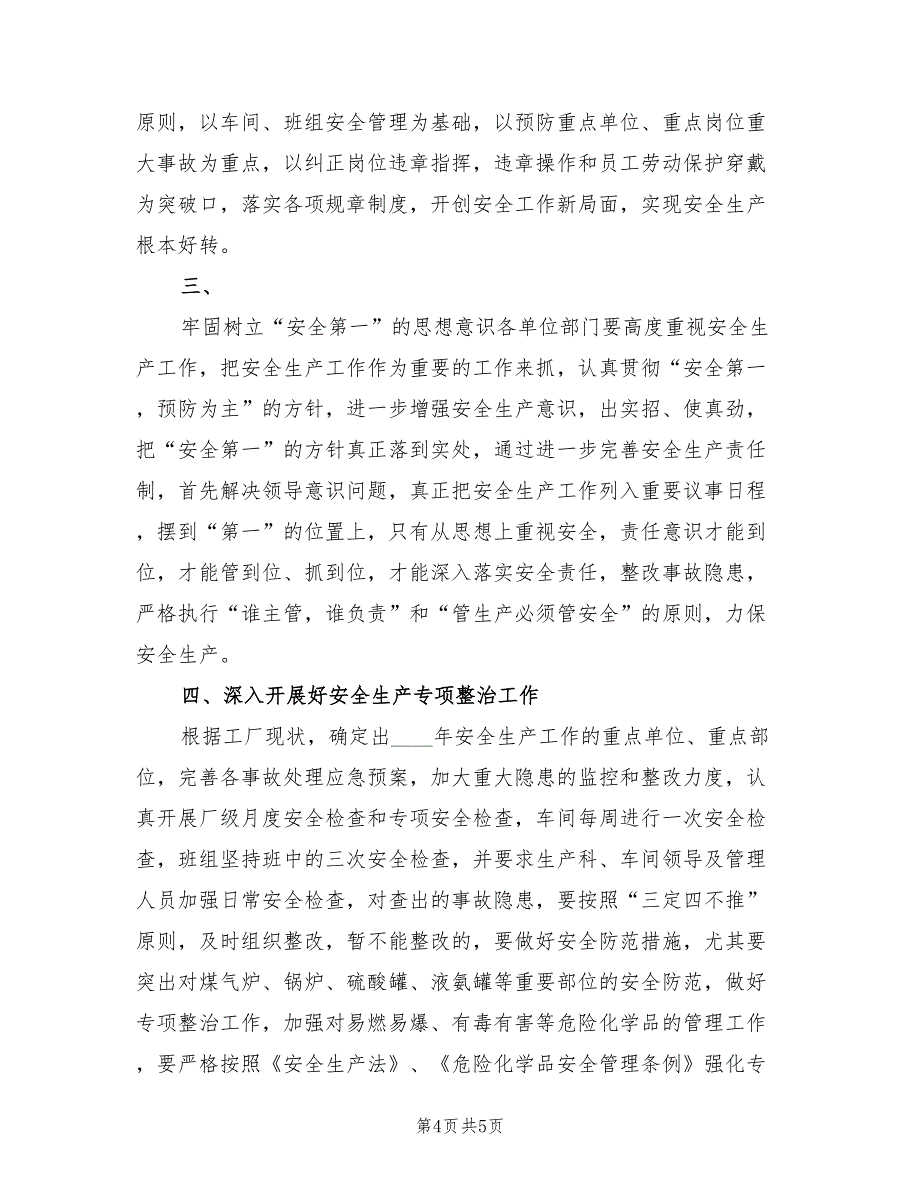 原则，以车间、班组安全管理为基础，以预防重点单位、重点岗位重
大事故为重点，以纠正岗位违章指挥，违章操作和员工劳动保护穿戴
为突破口，落实各项规章制度，开创安全工作新局面，实现安全生产
根本好转。
三、
牢固树立“安全第一”的思想意识各单位部门要高度重视安全生
产工作，把安全生产工作作为重要的工作来抓，认真贯彻“安全第一
，预防为主”的方针，进一步增强安全生产意识，出实招、使真劲，
把“安全第一”的方针真正落到实处，通过进一步完善安全生产责任
制，首先解决领导意识问题，真正把安全生产工作列入重要议事日程
，摆到“第一”的位置上，只有从思想上重视安全，责任意识才能到
位，才能管到位、抓到位，才能深入落实安全责任，整改事故隐患，
严格执行“谁主管，谁负责”和“管生产必须管安全”的原则，力保
安全生产。
四、深入开展好安全生产专项整治工作
根据工厂现状，确定出____年安全生产工作的重点单位、重点部
位，完善各事故处理应急预案，加大重大隐患的监控和整改力度，认
真开展厂级月度安全检查和专项安全检查，车间每周进行一次安全检
查，班组坚持班中的三次安全检查，并要求生产科、车间领导及管理
人员加强日常安全检查，对查出的事故隐患，要按照“三定四不推”
原则，及时组织整改，暂不能整改的，要做好安全防范措施，尤其要
突出对煤气炉、锅炉、硫酸罐、液氨罐等重要部位的安全防范，做好
专项整治工作，加强对易燃易爆、有毒有害等危险化学品的管理工作
，要严格按照《安全生产法》、《危险化学品安全管理条例》强化专
第4页共5页